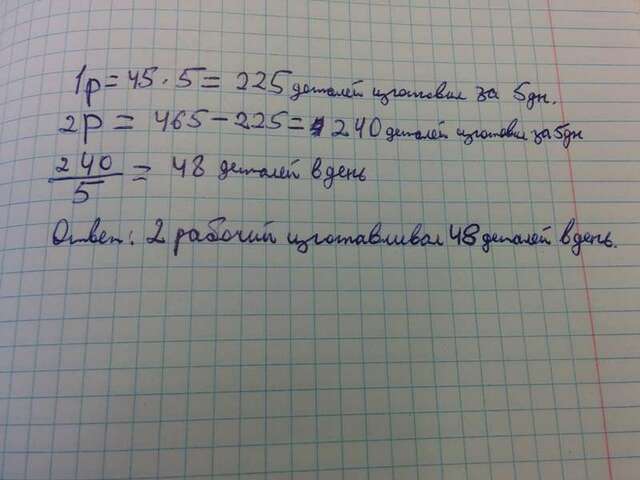 1р = 45 · 5 = 225 деталей изготовил за 5дн.
2р = 465 - 225 = 240 деталей изготовил за 5дн
240/5 = 48 деталей в день
Ответ: 2 рабочий изготавливал 48 деталей в день.